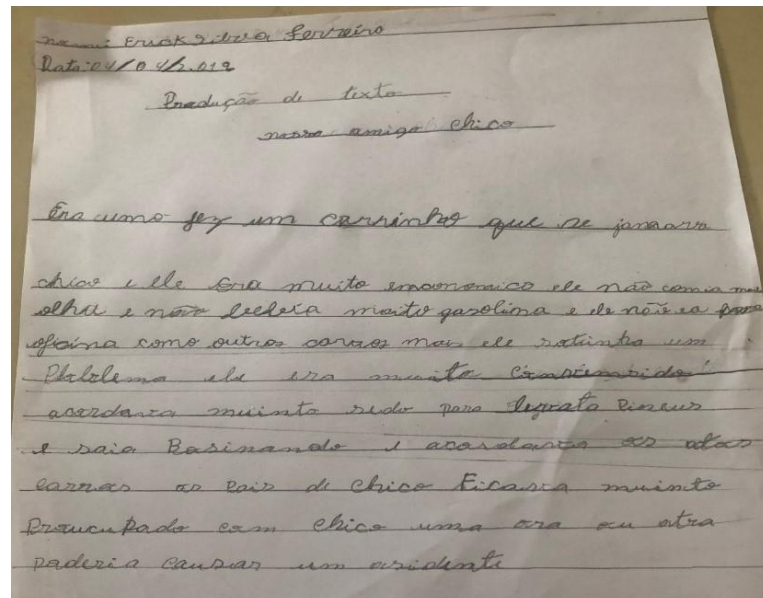 nome: Erick Silva Ferreira
Data: 04/04/2.019
Produção de texto
nosso amigo chico
Era uma fez um carrinho que se
chico e ele Era muito ele não comia
olha e não bebeia muito gasolina e ele não ia para
oficina como outros carros mais ele sotinha um
Ploblema ele era muito
acordava muinto sedo para Pineus
e saia Businando e acordava os otos
carros os Pais de chico Ficava muinto
Proucupado com chico uma ora ou otra
paderia causar um asidente